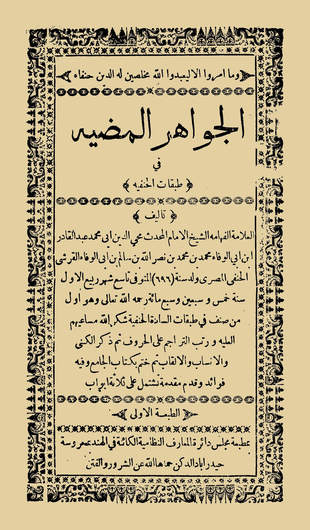 ﴿وما امروا الا ليعبدوا الله مخلصين له الدين حنفاء﴾
الجواهر المضيه
في
﴿طبقات الحنفيه﴾
﴿تاليف﴾
العلامة الفهامه الشيخ الامام المحدث محي الدين ابي محمد عبد القادر
ابن ابي الوفاء محمد بن محمد بن نصر الله بن سالم بن ابي الوفاء القرشي
الحنفي المصري ولد سنة (٦٩٦) المتوفى تاسع شهر ربيع الاول
سنة خمس وسبعين وسبع مائة رحمه الله تعالى وهو اول
من صنف في طبقات السادة الحنفية شكر الله مساعيهم
العليه ورتب التراجم على الحروف ثم ذكر الكنى
والانساب والالقاب ثم ختم بكتاب الجامع وفيه
فوائد وقدم مقدمة تشتمل على ثلاثة ابواب
﴿الطبعة الاولى﴾
بمطبعة مجلس دائرة المعارف النظامية الكائنة في الهند بمحروسة
حيدر اباد الدكن حماها الله عن الشرور والفتن